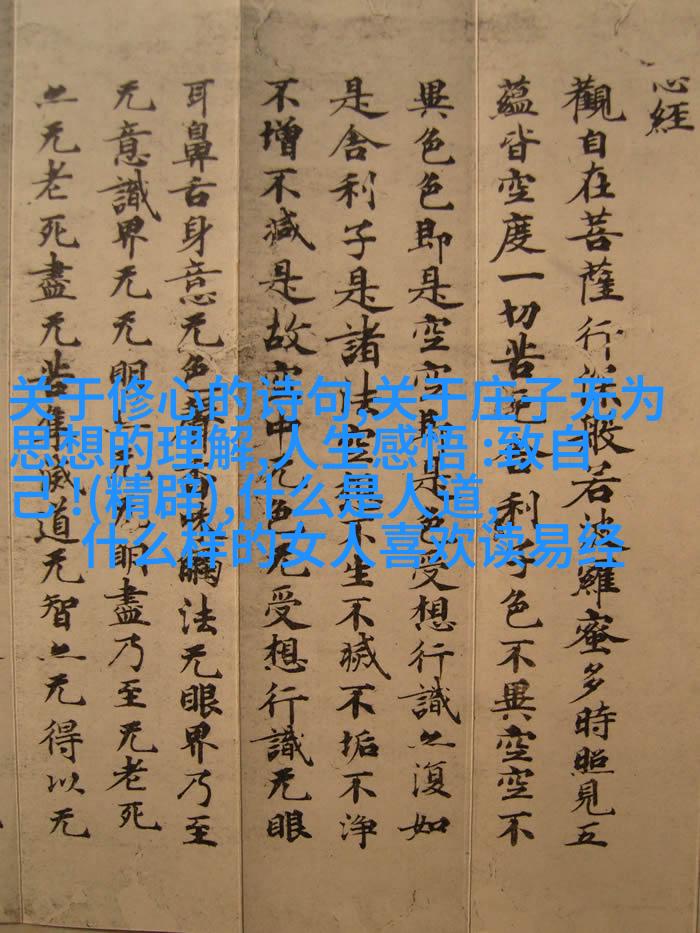 心經
觀自在菩薩行深般若波羅蜜多時照見五
蘊皆空度一切苦厄舍利子色不異空空不
異色色即是空空即是色受想行識亦復如
是舍利子是諸法空相不生不滅不垢不淨
不增不減是故空中无色无受想行識无眼
耳鼻舌身意无色聲香味觸法无眼界乃至
无意識界无无明亦无无明盡乃至无老死
亦无老死盡无苦集滅道无智亦无得以无
关于修心的诗句,关于庄子无为
思想的理解,人生感悟 :致自
己 !(精辟),什么是人道,
什么样的女人喜欢读易经